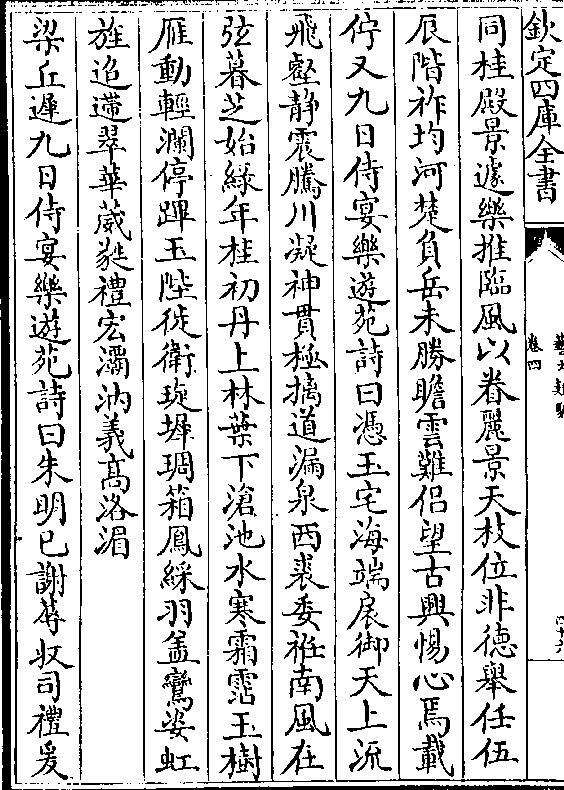 欽定四庫全書
卷四
同桂殿景遽樂推臨風以眷麗景天枝位非德舉任伍
辰階祚均河楚負岳未勝瞻雲難侣望古興惕心焉載
佇又九日侍宴樂遊苑詩曰憑玉宅海端扆御天上流
飛壑静震騰川凝神貫極摛道漏泉西裘委袵南風在
弦暮芝始緑年桂初丹上林葉下滄池水寒霜霑玉樹
雁動輕瀾停蹕玉陛徙衛琁墀琱箱鳳綵羽盖鸞姿虹
旌迢遰翠華葳蕤禮宏灞汭義髙洛湄
梁丘遲九日侍宴樂遊苑詩曰朱明已謝蓐收司禮爰